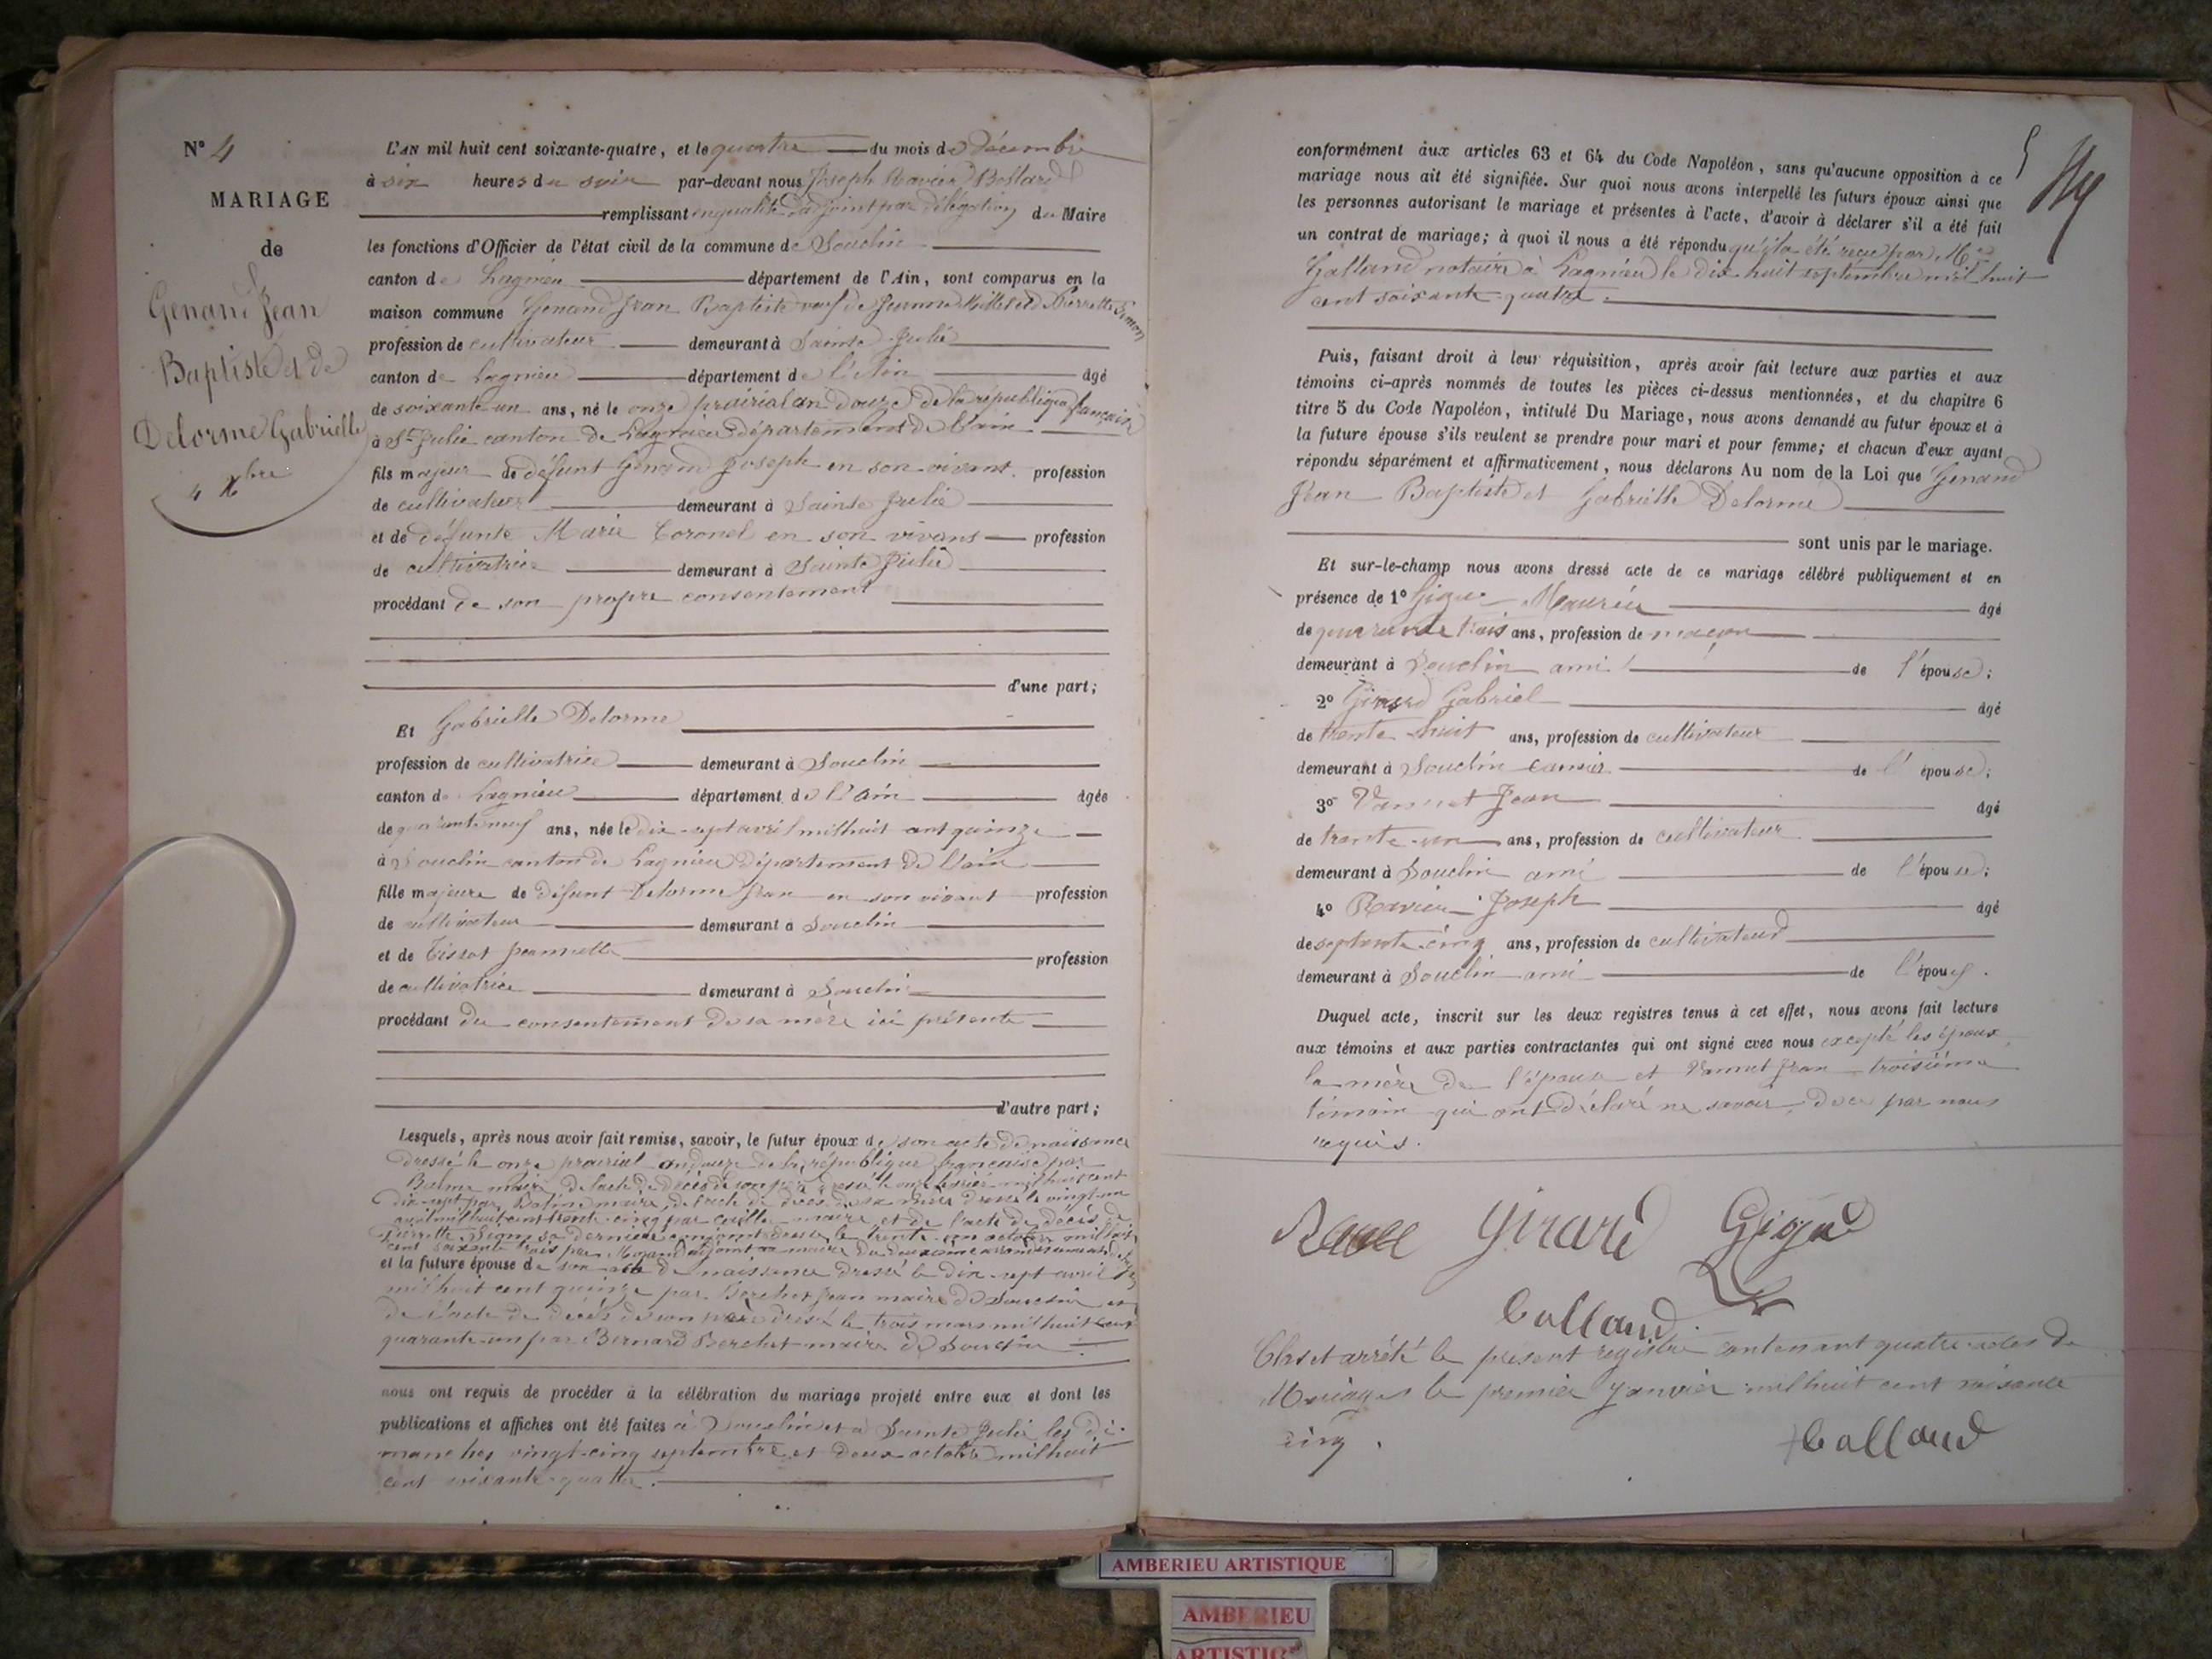 N° 4
MARIAGE
de
Genand Jean
Baptiste et de
Delorme Gabrielle
4 Xbre
L'AN mil huit cent soixante-quatre, et le quatre du mois de décembre
à six heures du soir par-devant nous Joseph Ravier
remplissant en qualité d'adjoint par délégation du Maire
les fonctions d'Officier de l'état civil de la commune de Souclin
canton de Lagnieu département de l'Ain, sont comparus en la
maison commune Genand Jean Baptiste veuf de Jeanne Millet et Pierrette Simon
profession de cultivateur demeurant à Sainte Julie
canton de Lagnieu département de l'Ain âgé
de soixante un ans, né le onze prairial an douze de la république française
à Ste Julie canton de Lagnieu département de l'ain
fils majeur de défunt Genand Joseph en son vivant profession
de cultivateur demeurant à Sainte Julie
et de défunte Marie Coronel en son vivant profession
de cultivatrice demeurant à Sainte Julie
procédant de son propre consentement
d'une part;
Et Gabrielle Delorme
profession de cultivatrice demeurant à Souclin
canton de Lagnieu département de l'ain âgée
de quarante neuf ans, née le dix-sept avril mil huit cent quinze
à Souclin canton de Lagnieu département de l'ain
fille majeure de défunt Delorme Jean en son vivant profession
de cultivateur demeurant à Souclin
et de Tissot Jeannette profession
de cultivatrice demeurant à Souclin
procédant du consentement de sa mère ici présente
d'autre part;
Lesquels, après nous avoir fait remise, savoir, le futur époux de son acte de naissance
dressé le onze prairial an douze de la république française par
maire de l'acte de décès de son père dressé le onze février mil huit cent
dix-sept par maire, de l'acte de décès de sa mère dressé le vingt un
avril mil huit cent trente-cinq par maire et de l'acte de décès de
Pierrette Simon sa dernière dressé le trente un octobre mil huit
cent soixante trois par adjoint au maire du deuxième arrondissement de
et la future épouse de son acte de naissance dressé le dix-sept avril
mil huit cent quinze par Berchet Jean maire de Souclin et
de l'acte de décès de son père dressé le trois mars mil huit cent
quarante-un par Bernard Berchet maire de Souclin
nous ont requis de procéder à la célébration du mariage projeté entre eux et dont les
publications et affiches ont été faites à Souclin et à Sainte Julie les di-
manches vingt-cinq septembre et deux octobre mil huit
cent soixante-quatre.
5
conformément aux articles 63 et 64 du Code Napoléon, sans qu'aucune opposition à ce
mariage nous ait été signifiée. Sur quoi nous avons interpellé les futurs époux ainsi que
les personnes autorisant le mariage et présentes à l'acte, d'avoir à déclarer s'il a été fait
un contrat de mariage; à quoi il nous a été répondu qu'il a été reçu par Me
Galland notaire à Lagnieu le dix-huit septembre mil huit
cent soixante-quatre.
Puis, faisant droit à leur réquisition, après avoir fait lecture aux parties et aux
témoins ci-après nommés de toutes les pièces ci-dessus mentionnées, et du chapitre 6
titre 5 du Code Napoléon, intitulé Du Mariage, nous avons demandé au futur époux et à
la future épouse s'ils veulent se prendre pour mari et pour femme; et chacun d'eux ayant
répondu séparément et affirmativement, nous déclarons Au nom de la Loi que Genand
Jean Baptiste et Gabrielle Delorme
sont unis par le mariage.
Et sur-le-champ nous avons dressé acte de ce mariage célébré publiquement et en
présence de 1° Maurice âgé
de quarante trois ans, profession de maçon
demeurant à Souclin ami de l'épouse;
2° Girard Gabriel âgé
de trente huit ans, profession de cultivateur
demeurant à Souclin de l'épouse;
3° Vannet Jean âgé
de trente-un ans, profession de cultivateur
demeurant à Souclin ami de l'épouse;
4° Ravier Joseph âgé
de septante-cinq ans, profession de cultivateur
demeurant à Souclin ami de l'épouse.
Duquel acte, inscrit sur les deux registres tenus à cet effet, nous avons fait lecture
aux témoins et aux parties contractantes qui ont signé avec nous excepté les époux,
la mère de l'épouse et Vannet Jean troisième
témoin qui ont déclaré ne savoir, de ce par nous
requis.
Girard
Colland
Clos et arrêté le présent registre contenant quatre actes de
Mariages le premier janvier mil huit cent soixante
cinq.
Colland
AMBERIEU ARTISTIQUE
AMBERIEU
ARTISTIQ